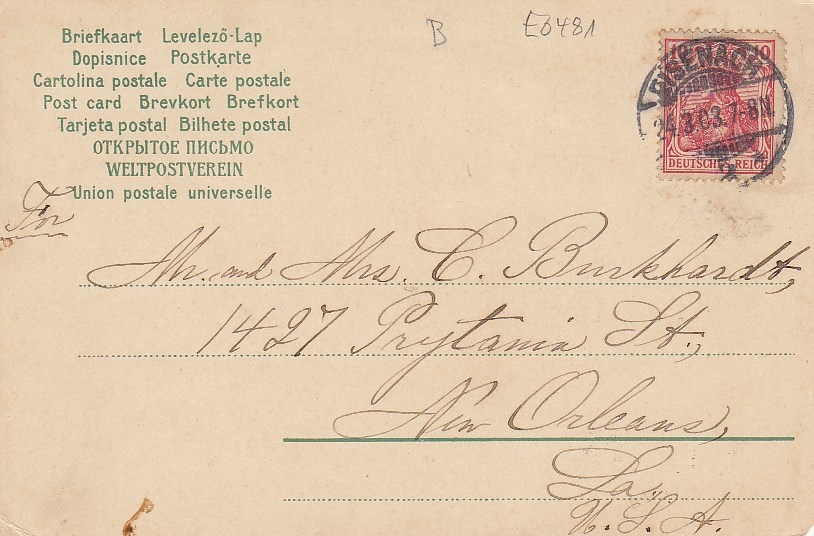 B E6481
Briefkaart Levelező-Lap
Dopisnice Postkarte
Cartolina postale Carte postale
Post card Brevkort Brefkort
Tarjeta postal Bilhete postal
ОТКРЫТОЕ ПИСЬМО
WELTPOSTVEREIN
Union postale universelle
10 10
EISENACH
24.3.03.7-8N.
DEUTSCHES REICH
For
Mr. and Mrs. C. Burkhardt,
1427 Prytania St.,
New Orleans,
La.
U. S. A.